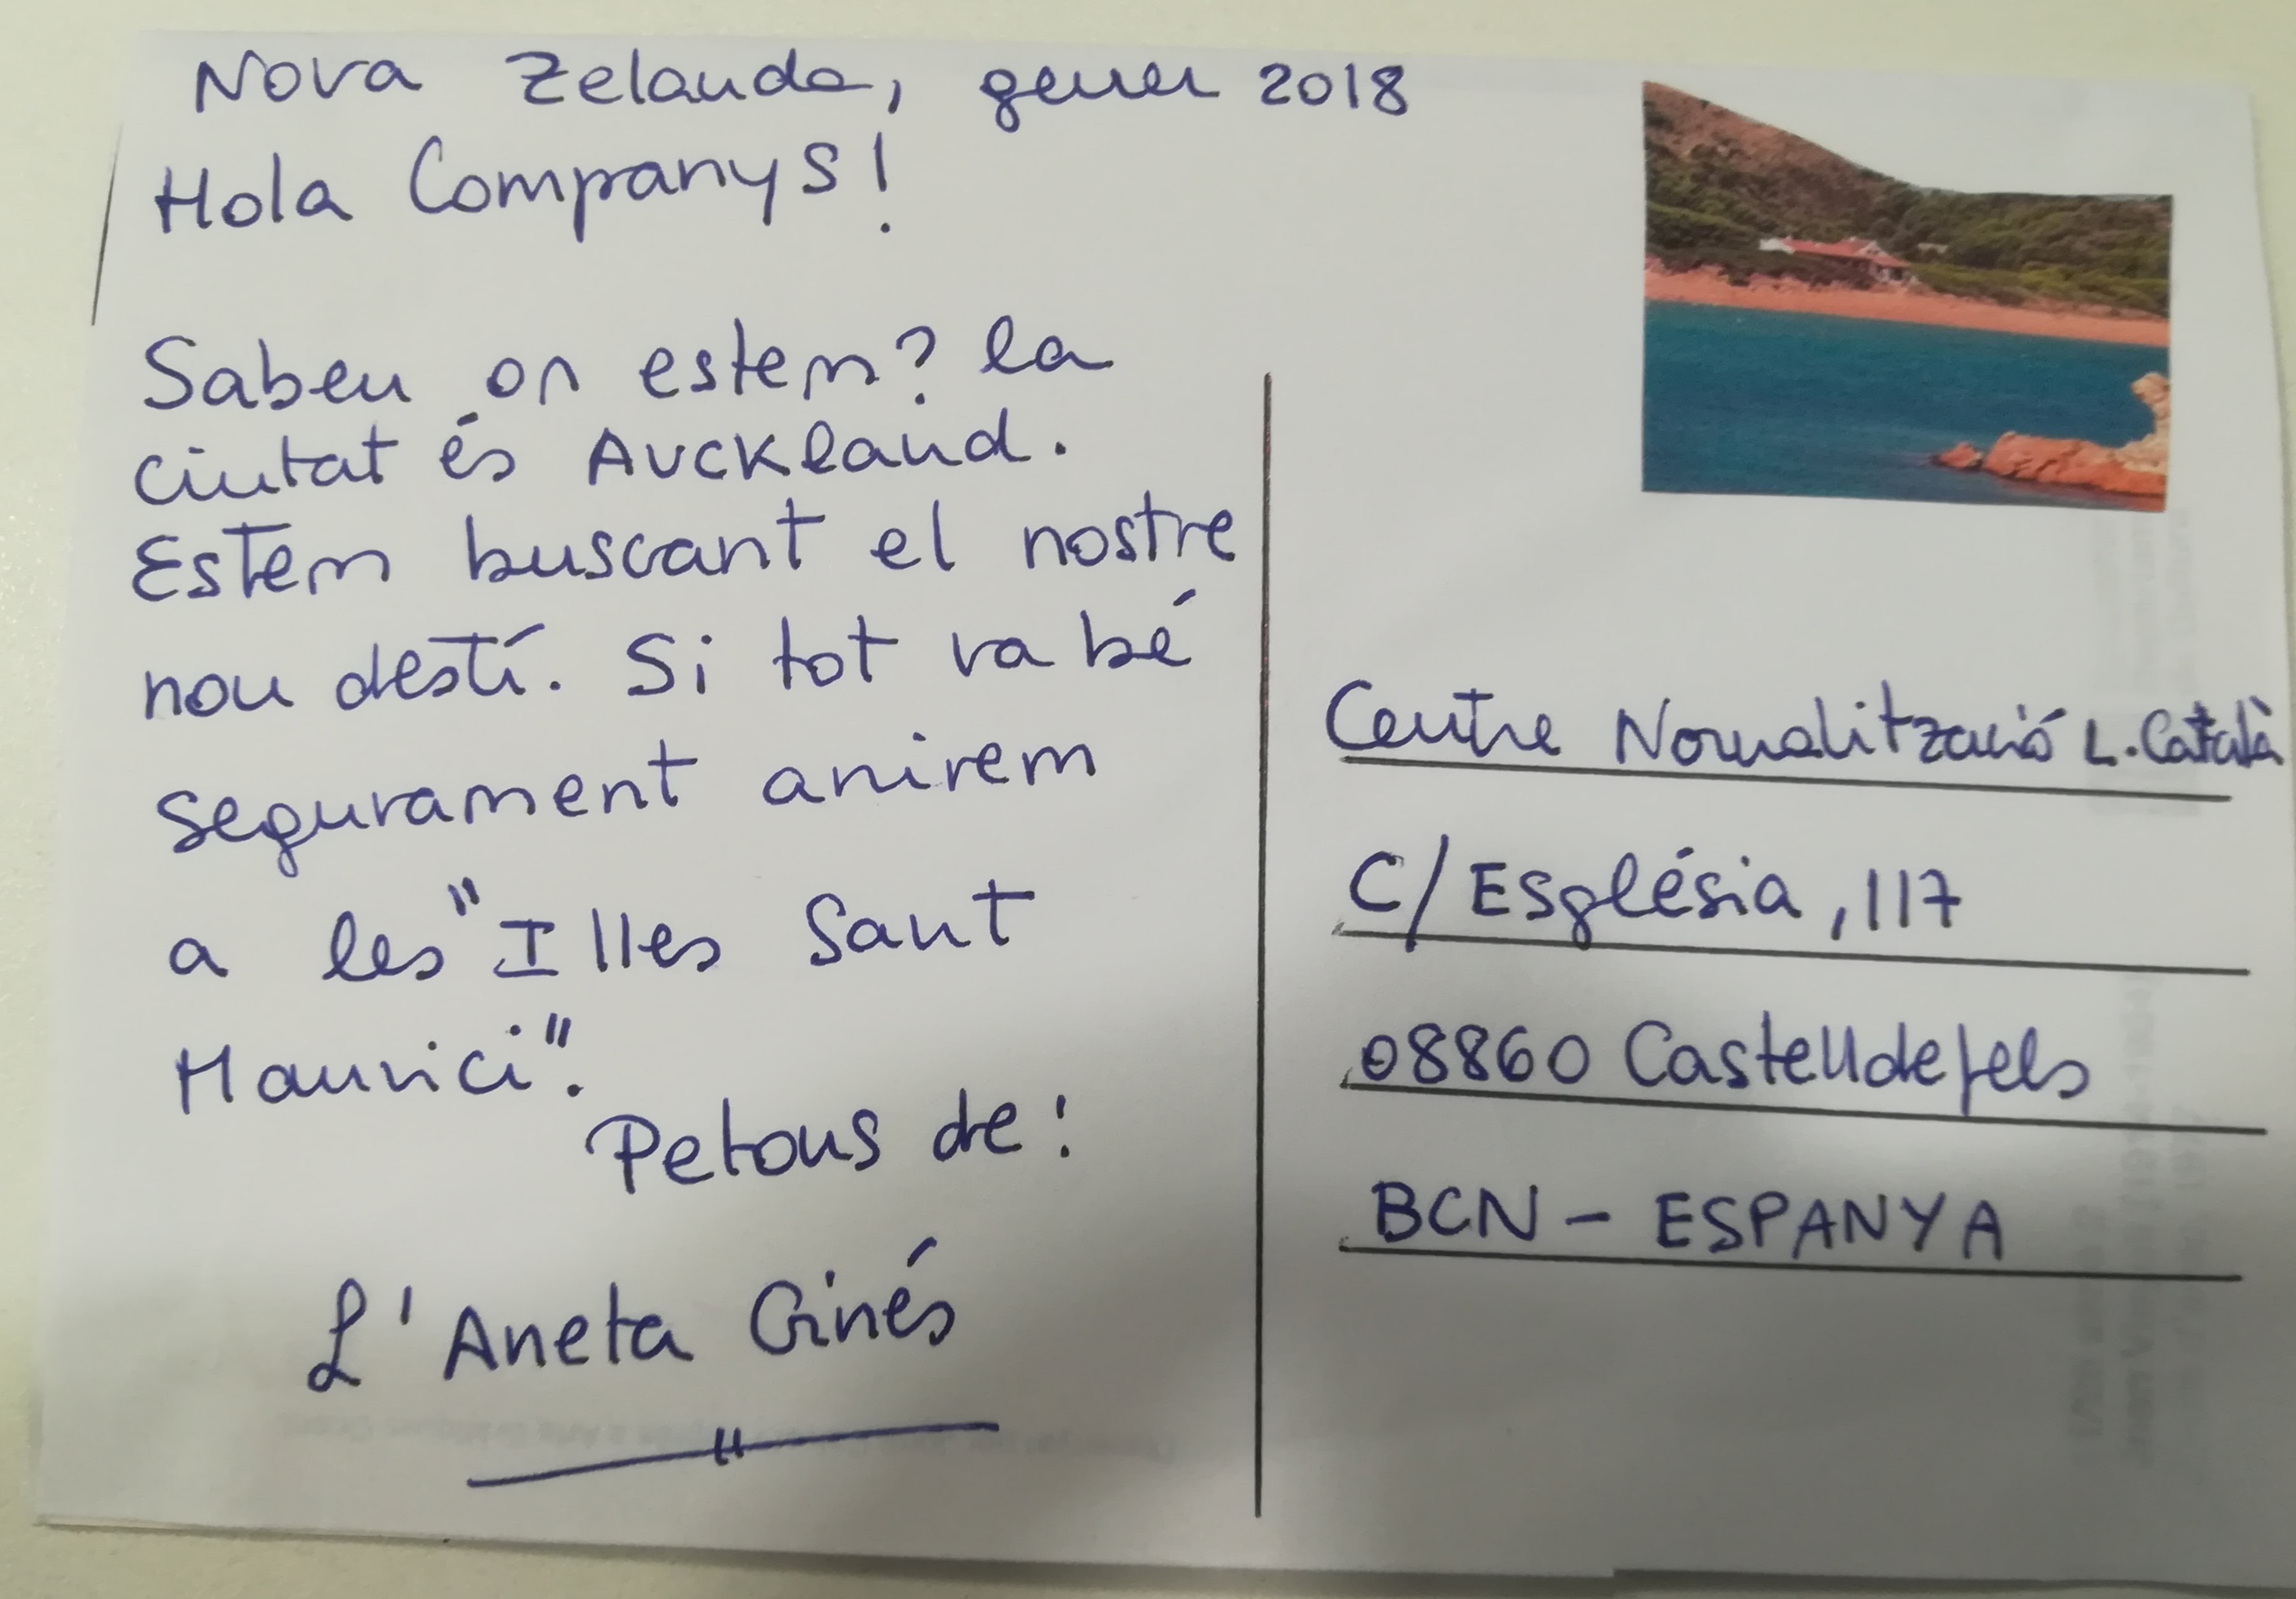 Nova Zelanda, gener 2018
Hola Companys!
Sabeu on estem? La
ciutat és Auckland.
Estem buscant el nostre
nou destí. Si tot va bé
segurament anirem
a les "Illes Sant
Maurici".
Petons de:
L'Aneta Ginés
Centre Normalització L. Català
C/ Església, 117
08860 Castelldefels
BCN - ESPANYA